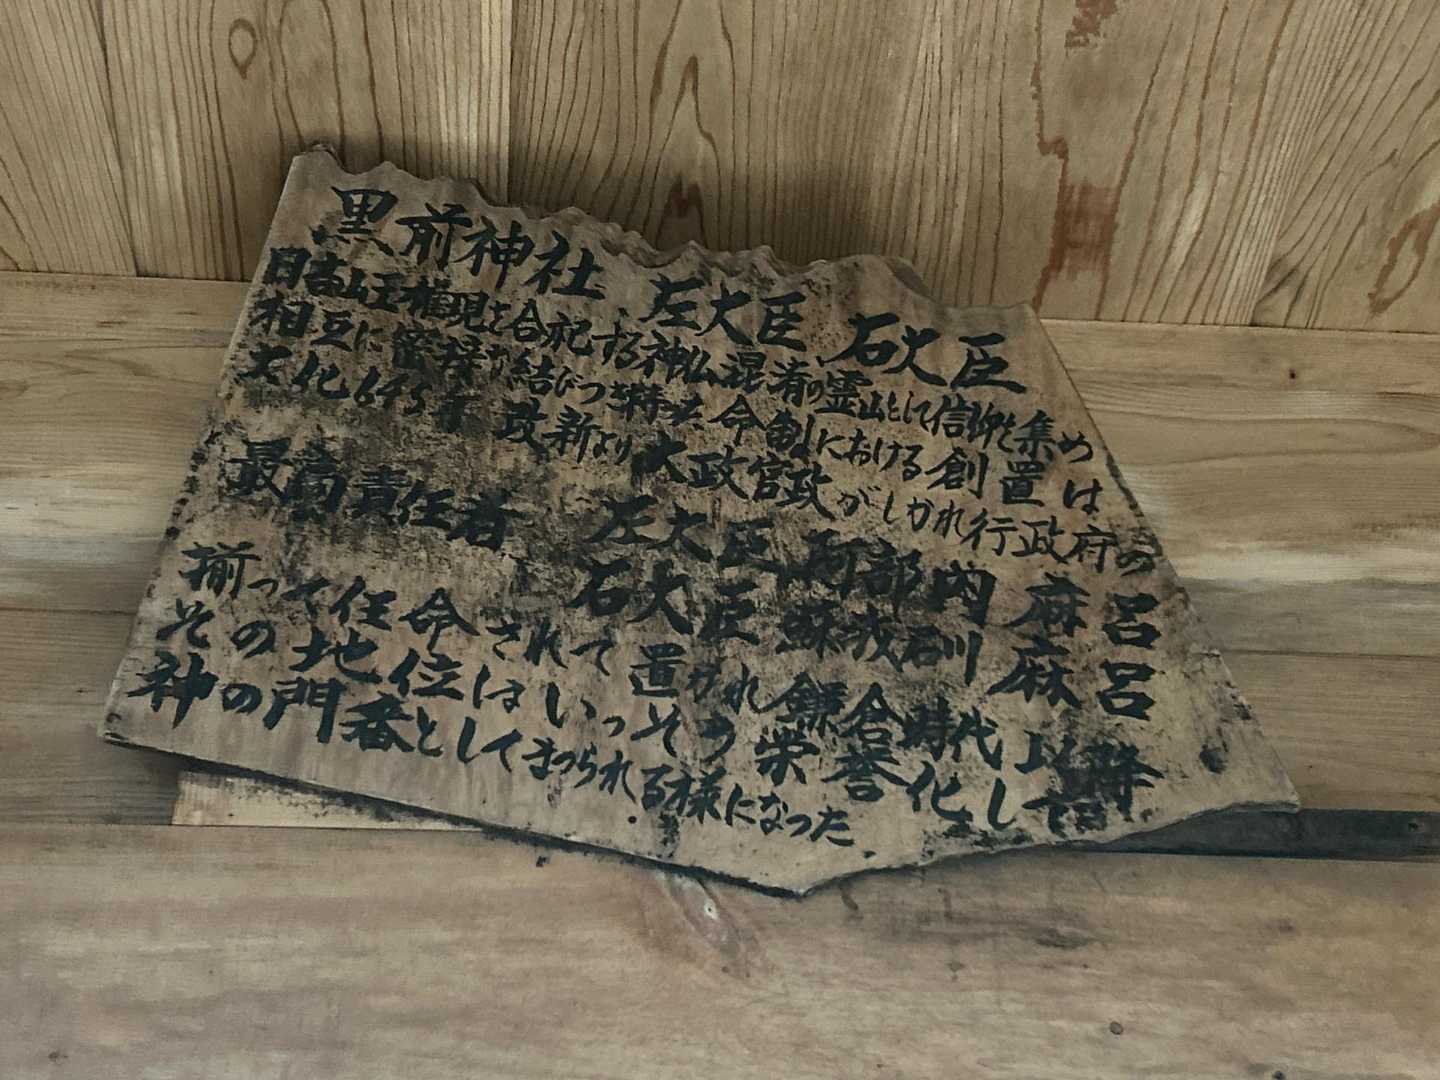 黒前神社 左大臣 石大臣
日吉山王権現を合祀する神仏混淆の霊山として信仰を集め
相互に密接な結びつき特大命令制における創置は
大化645年 改新より太政官政がしかれ行政府の
最高責任者 左大臣 阿部内麻呂
石大臣 蘇我石川麻呂
揃って任命されて置かれ鎌倉時代以降
その地位はいっそう栄誉化して
神の門番としてまつられる様になった